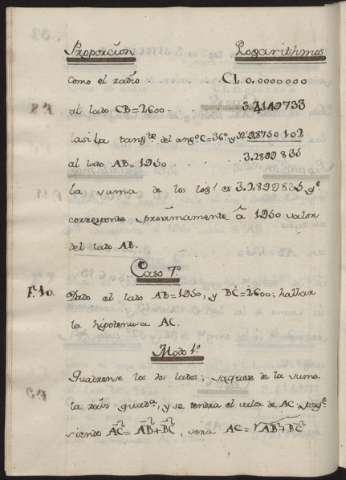 Proporcion Logarithmos
Como el radio Cl. 0.0000000
al lado CB=2600 3.4149733
asi la tang.te del ang.o C=36° y
al lado AB=1950 3.2899835
la suma de los log.s es 3.2899835 q.e
corresponde aproximamente â 1950 valor
del lado AB.
Caso 7°
F.10. Dado el lado AB=1950, y BC=2600; hallar
la hipotenusa AC.
Modo 1°
Quadrense los dos lados; saquese de la suma
la raiz quad.a, y se tendrá el valor de AC
siendo AC²=AB²+BC², sera AC=√AB²+BC²